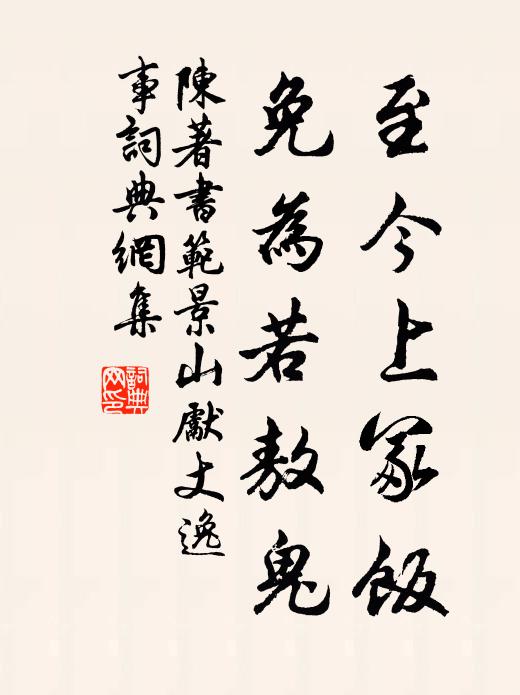 至今上冢飯
免為若敖鬼
陳著書範景山獻丈逸
事詞典網集
詞典網印